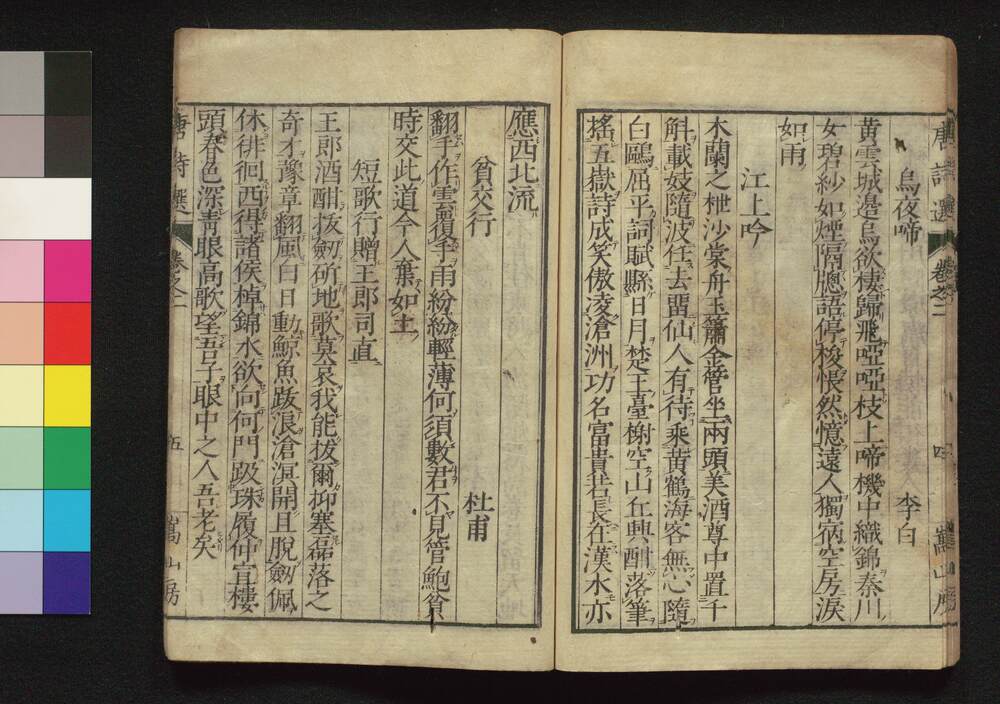 唐詩選 卷之二 四 嵩山房
烏夜啼 李白
黃雲城邊烏欲棲歸飛啞啞枝上啼機中織錦秦川
女碧紗如煙隔牕語停梭悵然憶遠人獨宿空房淚
如雨
江上吟
木蘭之枻沙棠舟玉簫金管坐兩頭美酒尊中置千
斛載妓隨波任去留仙人有待乘黃鶴海客無心隨
白鷗屈平詞賦縣日月楚王臺榭空山丘興酣落筆
搖五嶽詩成笑傲凌滄洲功名富貴若長在漢水亦
應西北流
貧交行 杜甫
翻手作雲覆手雨紛紛輕薄何須數君不見管鮑貧
時交此道今人棄如土
短歌行贈王郎司直
王郎酒酣拔劒斫地歌莫哀我能拔爾抑塞磊落之
奇才豫章翻風白日動鯨魚跋浪滄溟開且脫劒佩
休徘徊西得諸侯棹錦水欲向何門趿珠履仲宣樓
頭春色深靑眼高歌望吾子眼中之人吾老矣
唐詩選 卷之二 五 嵩山房